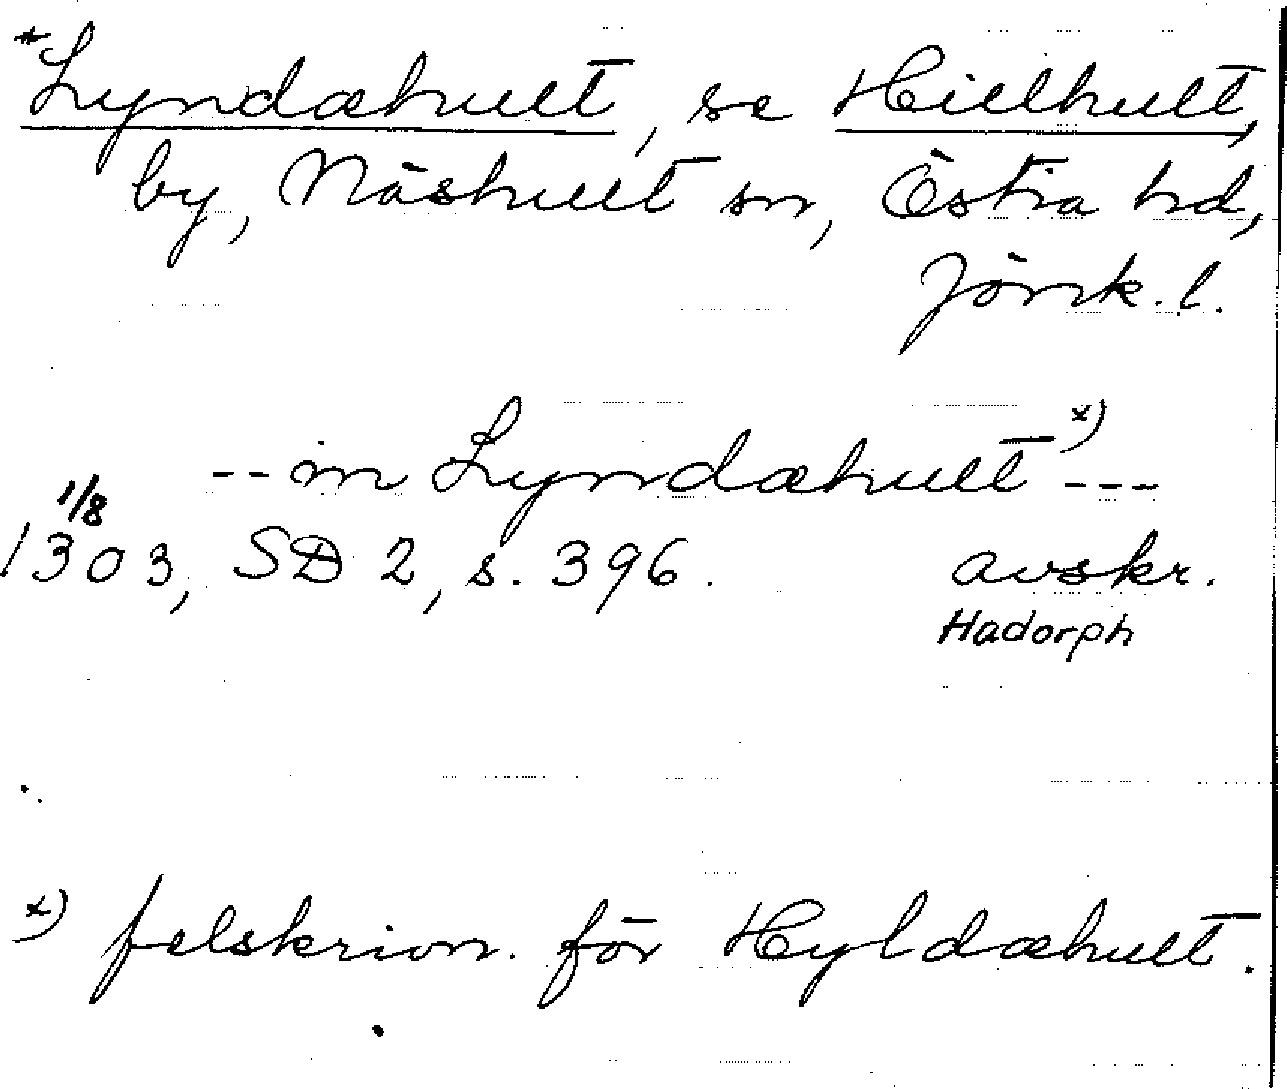 *Lyndæhult, se Hillhult,
by, Näshult sn, Östra hd,
Jönk. l.
-- in Lyndæhult x) ---
1/8
1303, SD 2, s. 396. avskr.
Hadorph
x) felskrivn. för Hyldæhult.